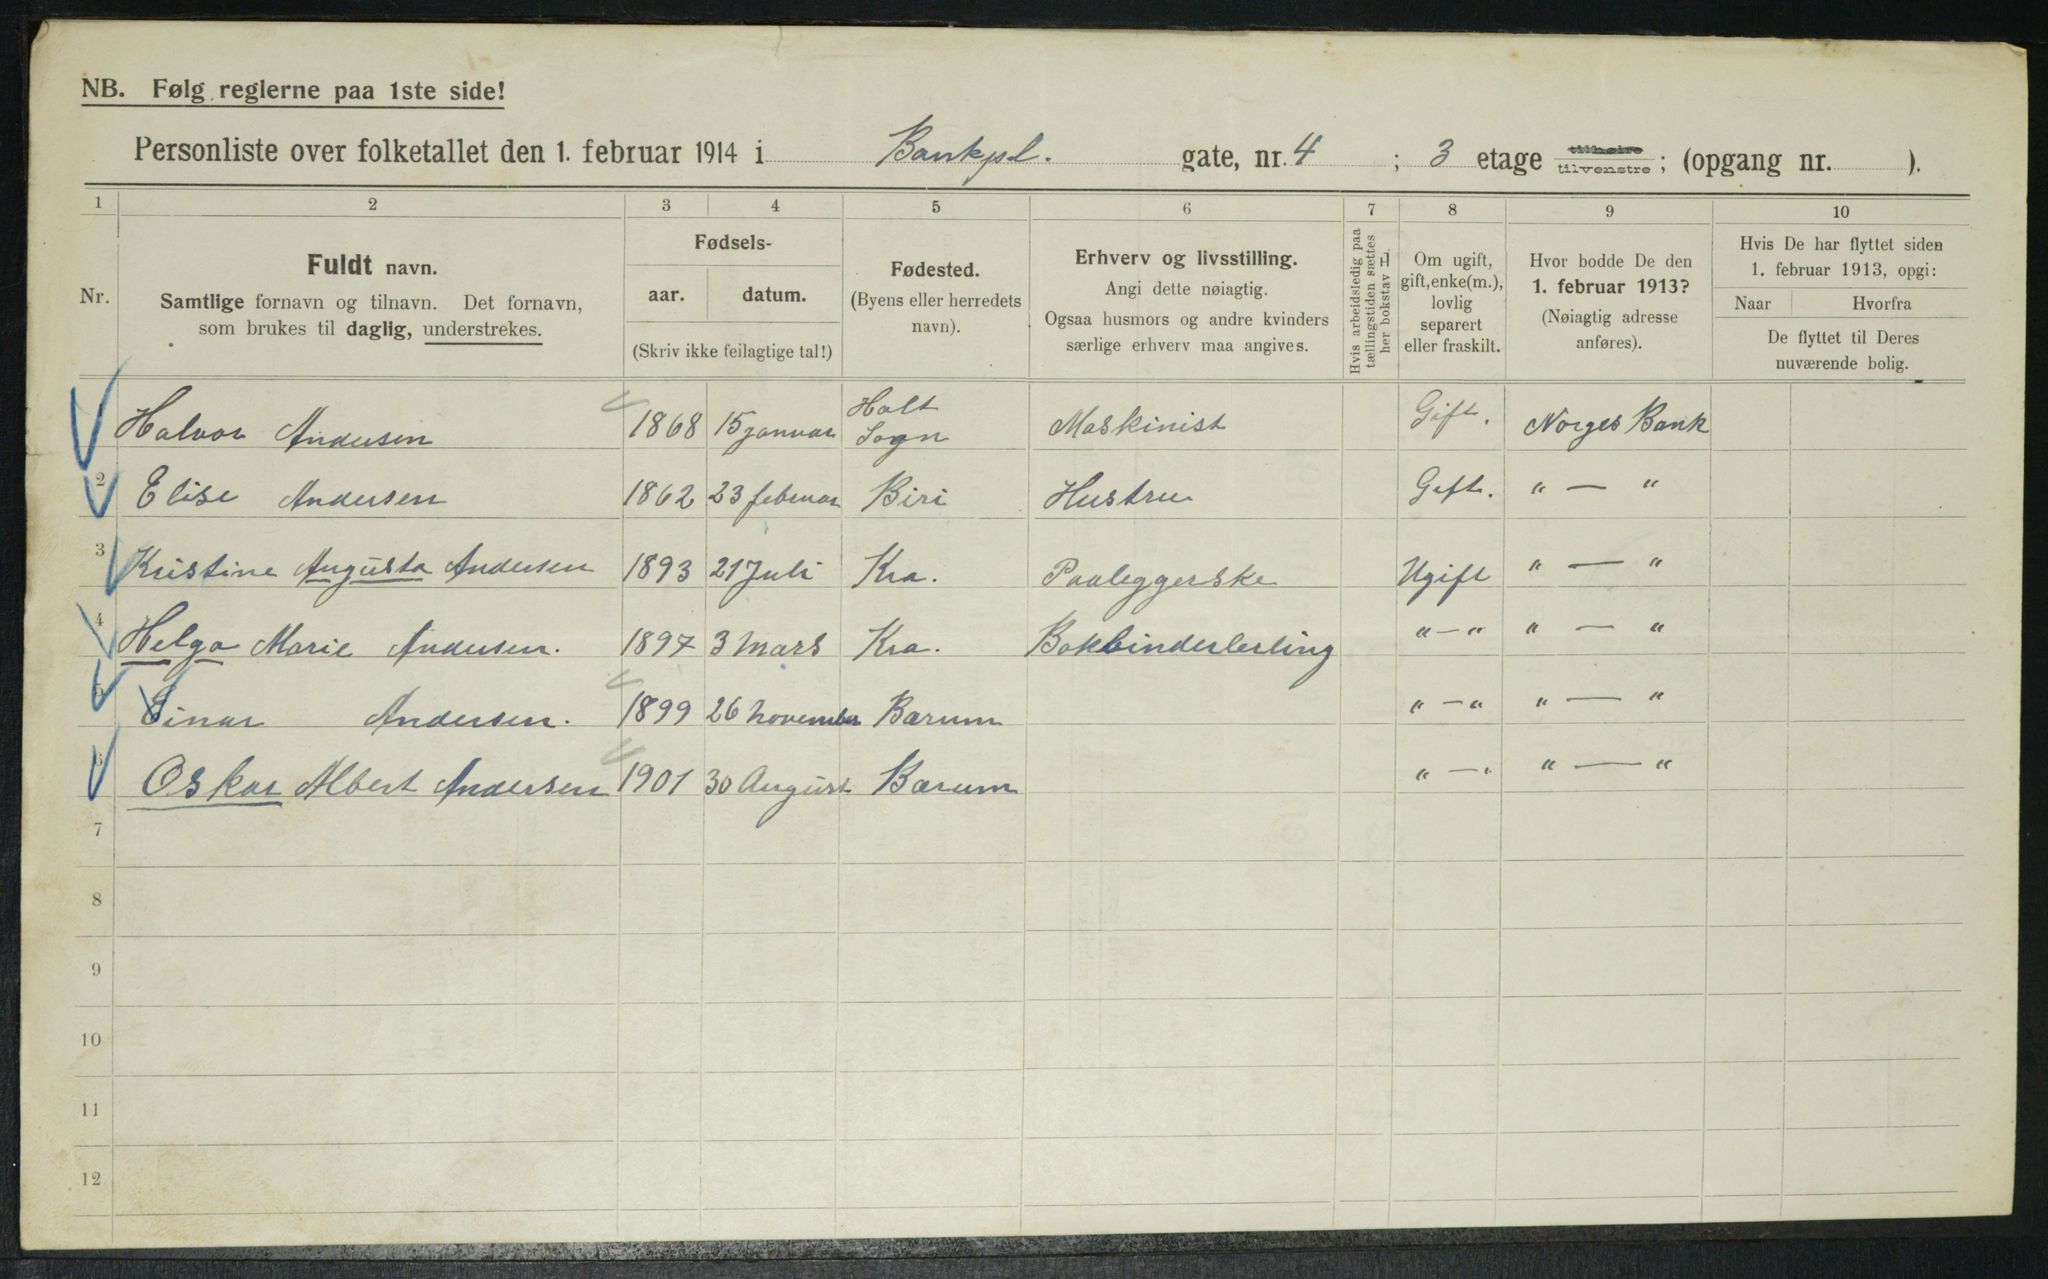 NB. Følg reglerne paa 1ste side!
Personliste over folketallet den 1. februar 1914 i Bankpl. gate, nr. 4 ; 3 etage tilhøire tilvenstre ; (opgang nr. ).
1 2 3 4 5 6 7 8 9 10
Nr.
Fuldt navn.
Samtlige fornavn og tilnavn. Det fornavn,
som brukes til daglig, understrekes.
Fødsels-
aar. datum.
(Skriv ikke feilagtige tal!)
Fødested.
(Byens eller herredets
navn).
Erhverv og livsstilling.
Angi dette nøiagtig.
Ogsaa husmors og andre kvinders
særlige erhverv maa angives.
Hvis arbeidsledig paa
tællingstiden sættes
her bokstav H.
Om ugift,
gift, enke(m.),
lovlig
separert
eller fraskilt.
Hvor bodde De den
1. februar 1913?
(Nøiagtig adresse
anføres).
Hvis De har flyttet siden
1. februar 1913, opgi:
Naar Hvorfra
De flyttet til Deres
nuværende bolig.
Halvor Andersen 1868 15 januar Holt Sogn Maskinist Gift. Norges Bank
2 Elise Andersen 1862 23 februar Biri Hustru Gift. " — "
3 Kristine Augusta Andersen 1893 21 Juli Kra. Paaleggerske Ugift " — "
4 Helga Marie Andersen. 1897 3 Mars Kra. Bokbinderlerling " — " " — "
5 Einar Andersen. 1899 26 november Bærum " — " " — "
6 Oskar Albert Andersen 1901 30 August Bærum " — " " — "
7
8
9
10
11
12